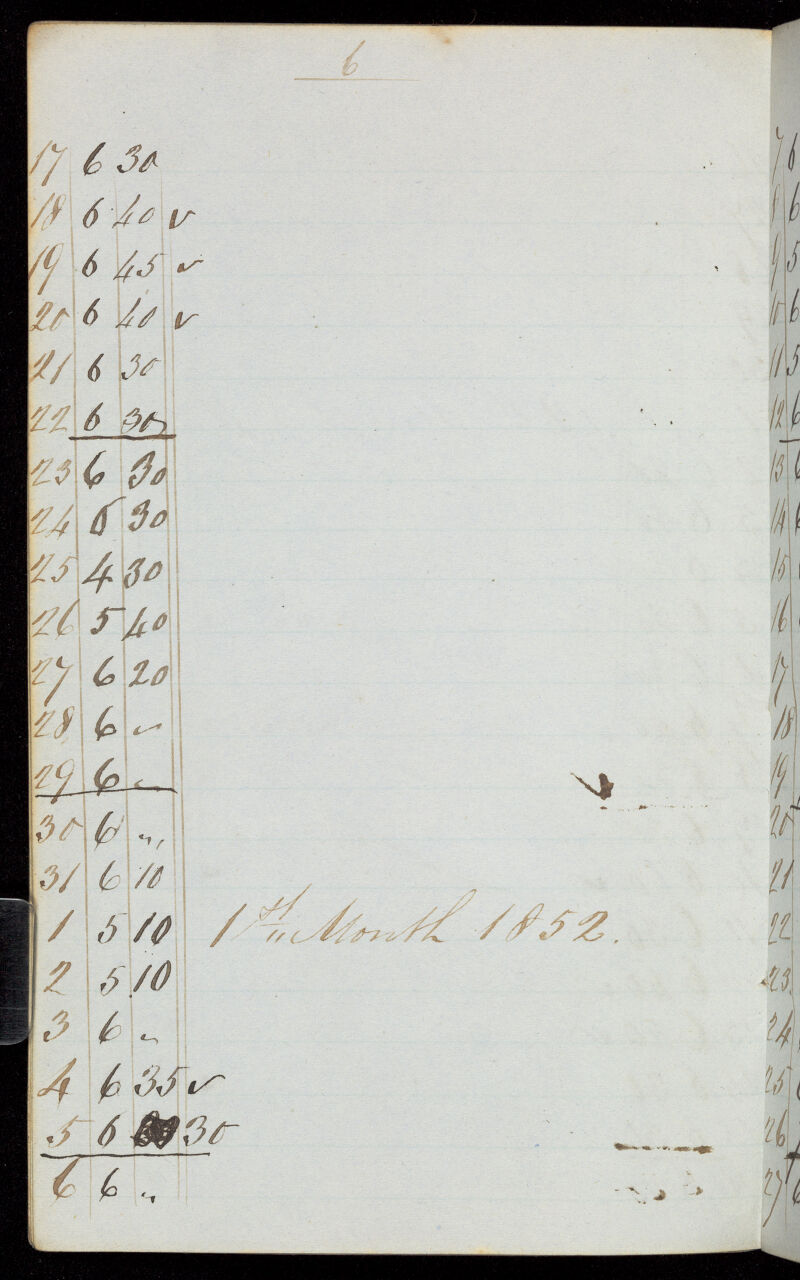 6
17 6 30
18 6 40 ✓
19 6 45 ✓
20 6 40 ✓
21 6 30
22 6 30
23 6 30
24 6 30
25 4 30
26 5 40
27 6 20
28 6 "
29 6 "
30 6 "
31 6 10
1 5 10 1st Month 1852.
2 5 10
3 6 "
4 6 35 ✓
5 6 30
6 6 "
7 6
8 6
9 5
10 6
11 5
12 6
13 6
14 6
15
16
17
18
19
20
21
22
23
24
25
26
27 6